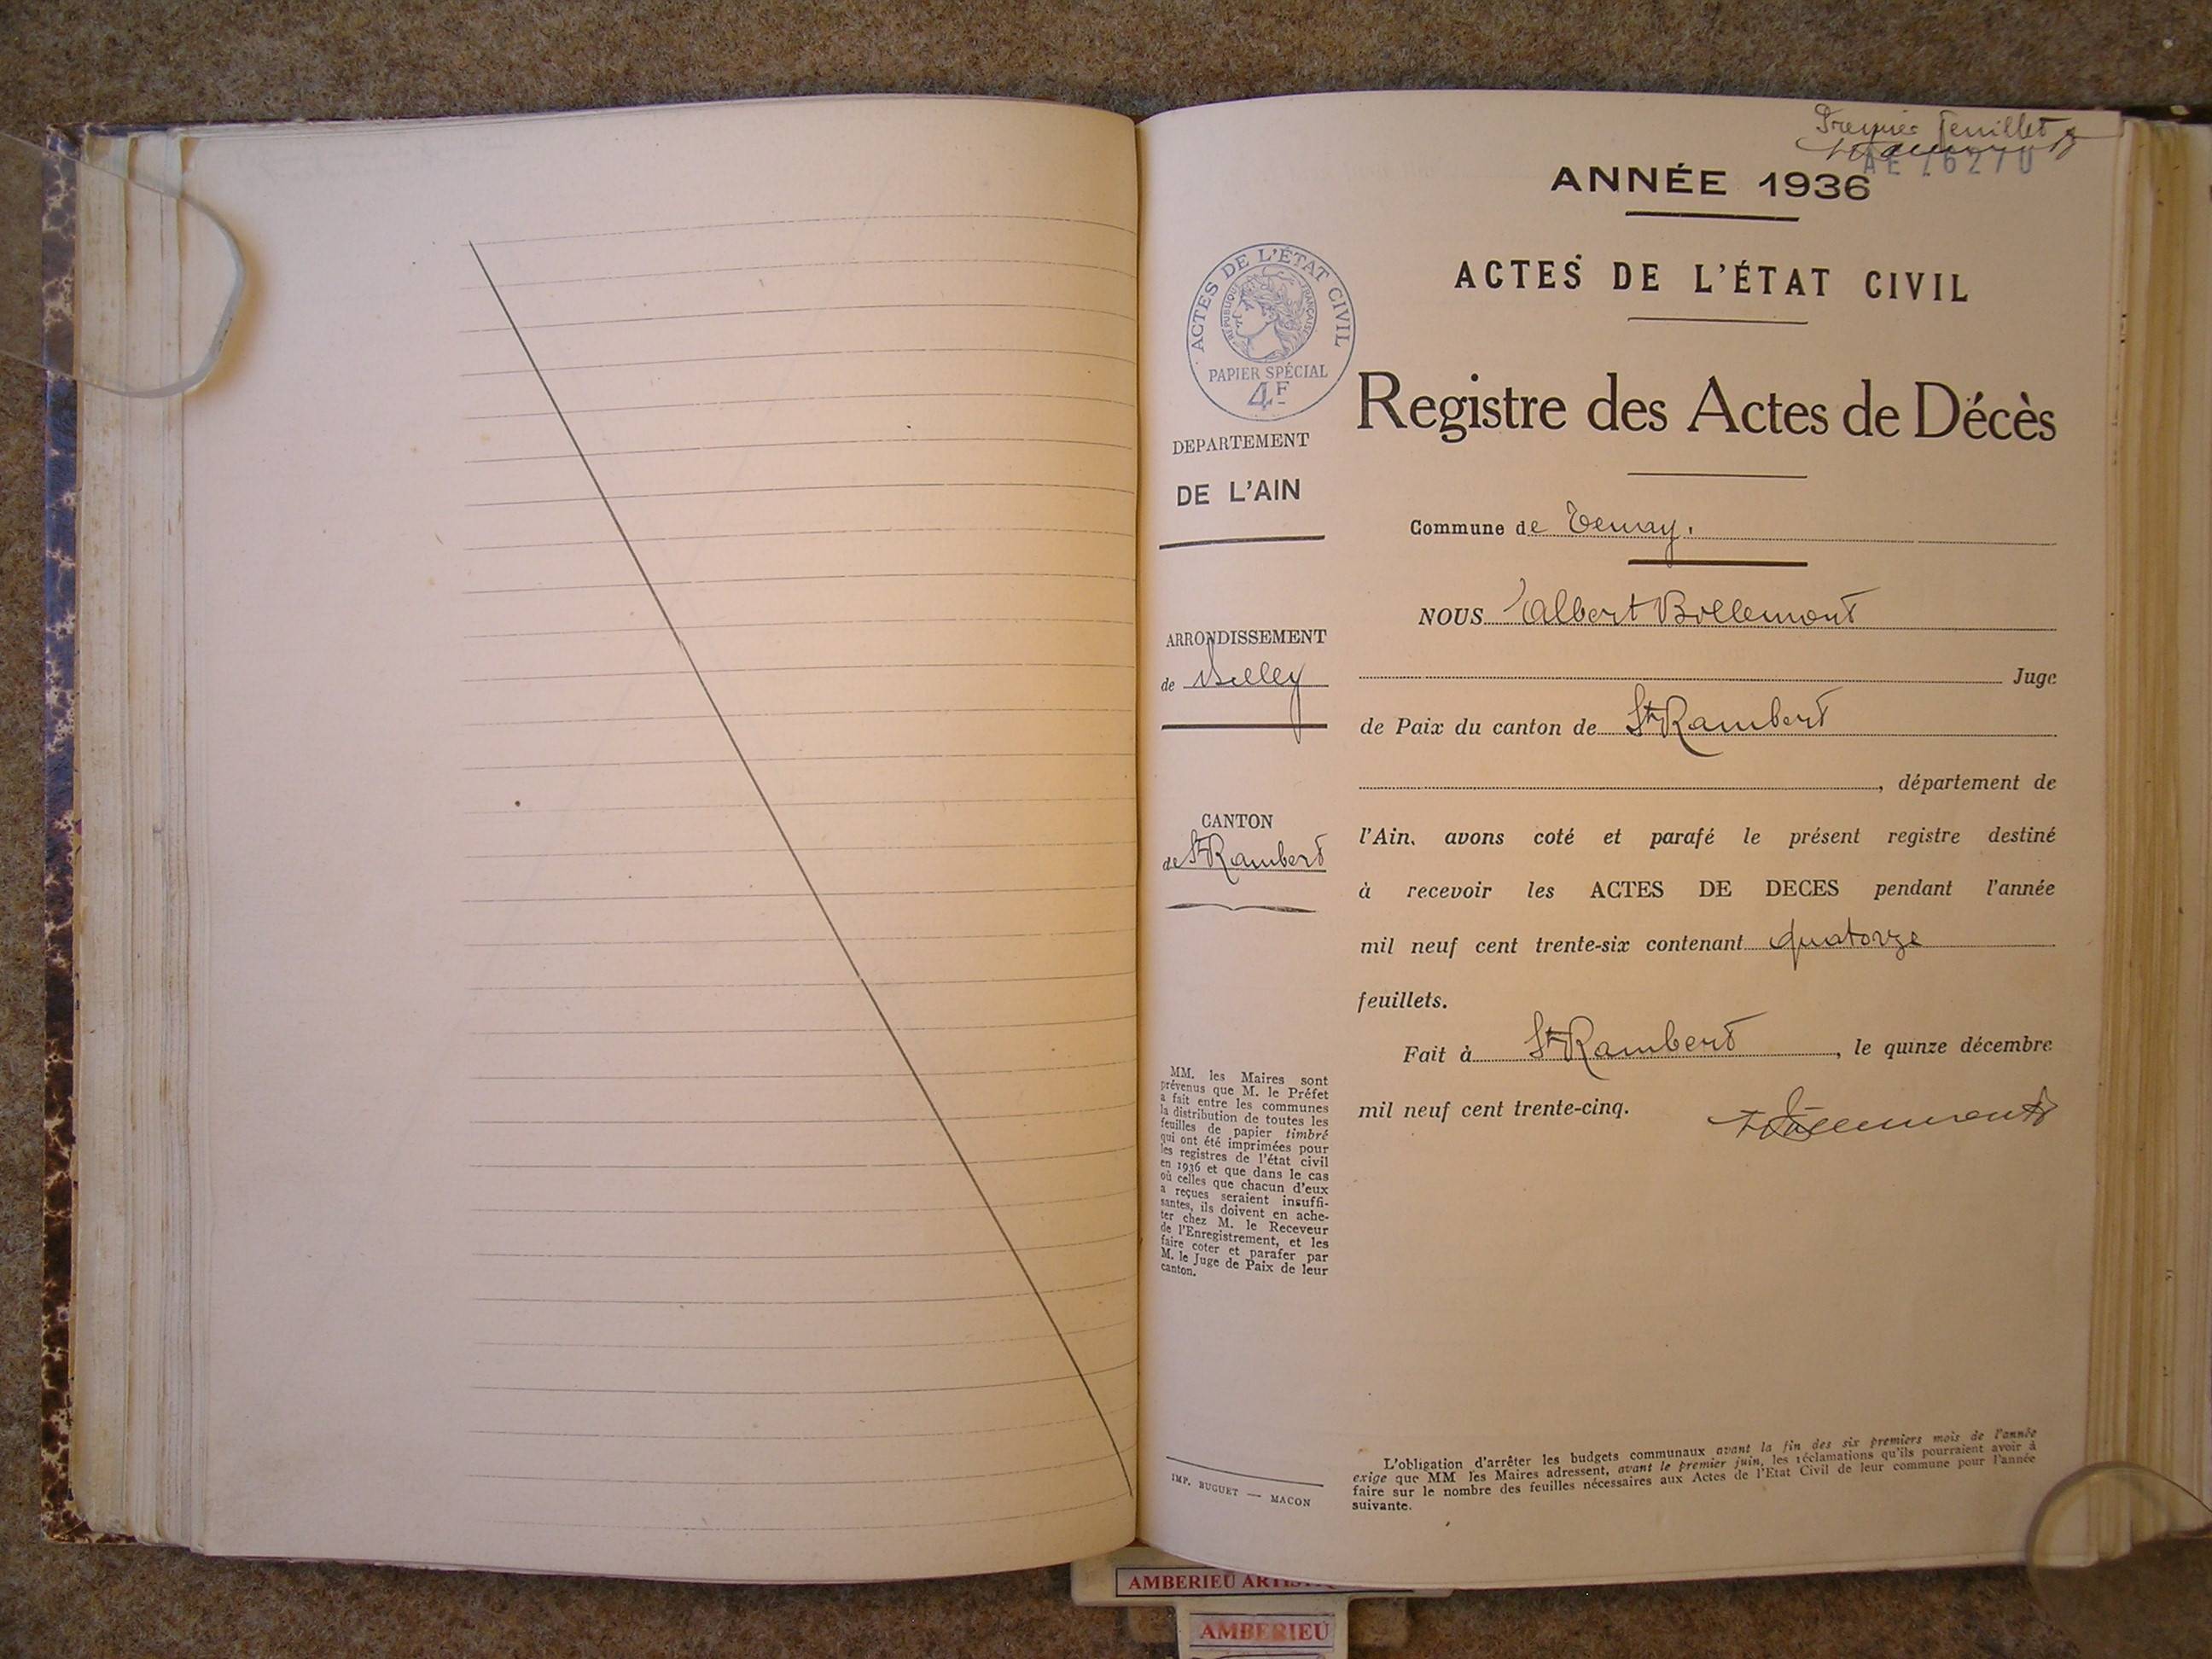 Premier feuillet
AE 76270
ANNÉE 1936
ACTES DE L'ÉTAT CIVIL
ACTES DE L'ÉTAT CIVIL
RÉPUBLIQUE FRANÇAISE
PAPIER SPÉCIAL
4F
Registre des Actes de Décès
DEPARTEMENT
DE L'AIN
Commune de Tenay.
NOUS Albert Bollemont
ARRONDISSEMENT
de Belley
Juge
de Paix du canton de St Rambert
, département de
CANTON
de St Rambert
l'Ain, avons coté et parafé le présent registre destiné
à recevoir les ACTES DE DECES pendant l'année
mil neuf cent trente-six contenant quatorze
feuillets.
Fait à St Rambert, le quinze décembre
mil neuf cent trente-cinq.
MM. les Maires sont
prévenus que M. le Préfet
a fait entre les communes
la distribution de toutes les
feuilles de papier timbré
qui ont été imprimées pour
les registres de l'état civil
en 1936 et que dans le cas
où celles que chacun d'eux
a reçues seraient insuffi-
santes, ils doivent en ache-
ter chez M. le Receveur
de l'Enregistrement, et les
faire coter et parafer par
M. le Juge de Paix de leur
canton.
IMP. BUGUET — MACON
L'obligation d'arrêter les budgets communaux avant la fin des six premiers mois de l'année
exige que MM les Maires adressent, avant le premier juin, les réclamations qu'ils pourraient avoir à
faire sur le nombre des feuilles nécessaires aux Actes de l'Etat Civil de leur commune pour l'année
suivante.
AMBERIEU
AMBERIEU